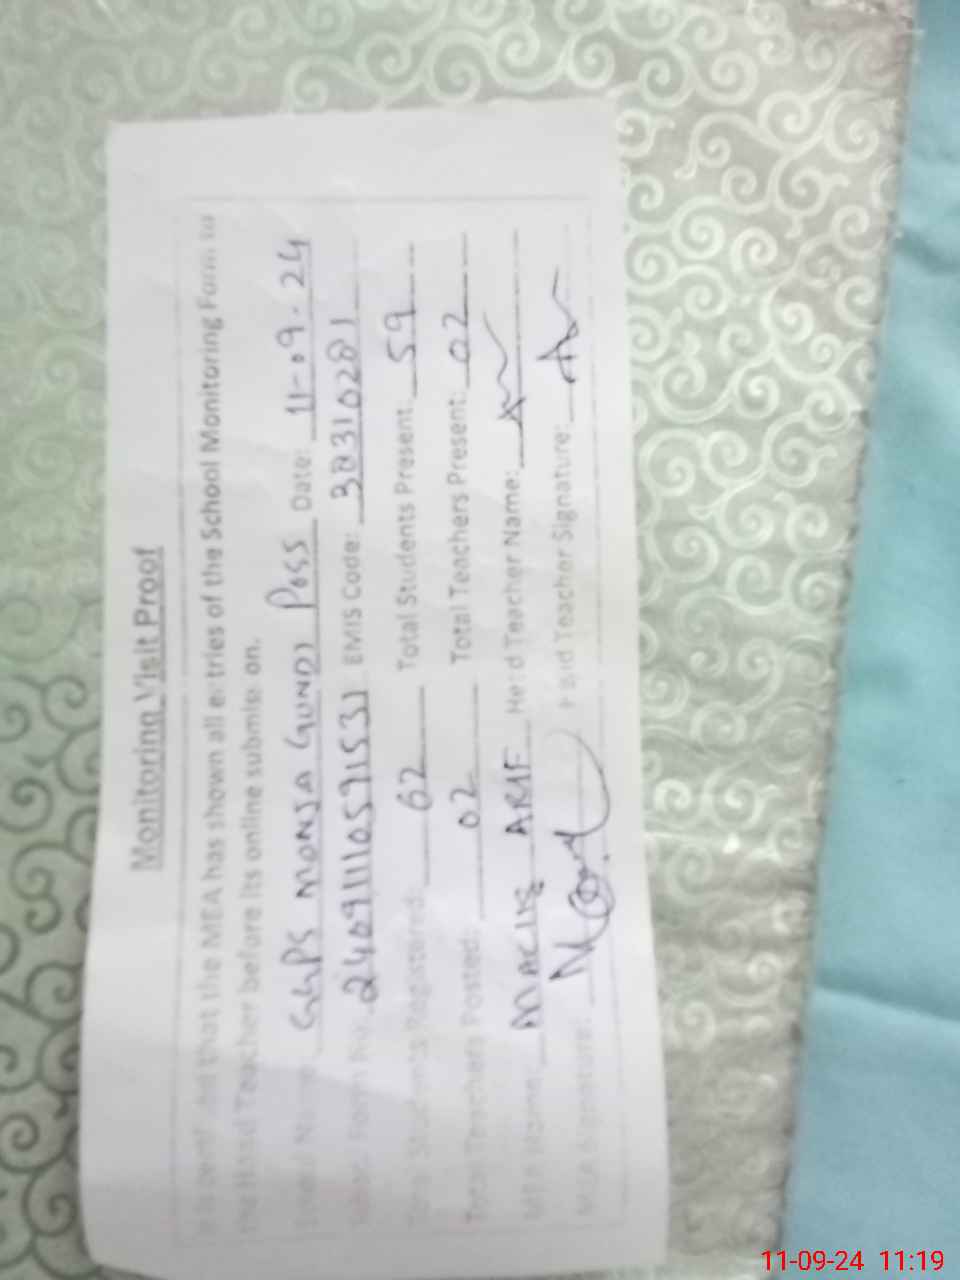 Monitoring Visit Proof
It is certified that the MEA has shown all entries of the School Monitoring Form to
the Head Teacher before its online submission.
School Name: GGPS MONJA GUNDI Poss Date: 11-09-24
Form No: 240911105971531 EMIS Code: 38310281
Total Students Registered: 62 Total Students Present: 59
Total Teachers Posted: 02 Total Teachers Present: 02
MEA Name: Head Teacher Name:
MEA Signature: Head Teacher Signature:
11-09-24 11:19